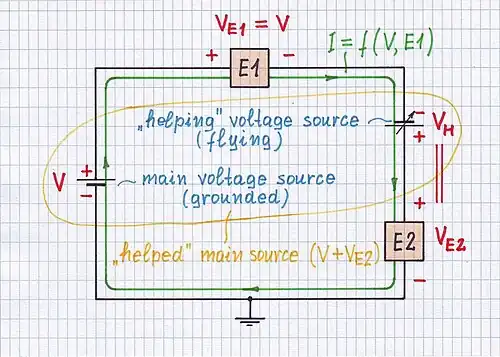 V_E1 = V
+ E1 −
I = f(V, E1)
„helping" voltage source
(flying)
− V_H
+
V + −
main voltage source
(grounded)
+
E2 V_E2
−
„helped" main source (V+V_E2)